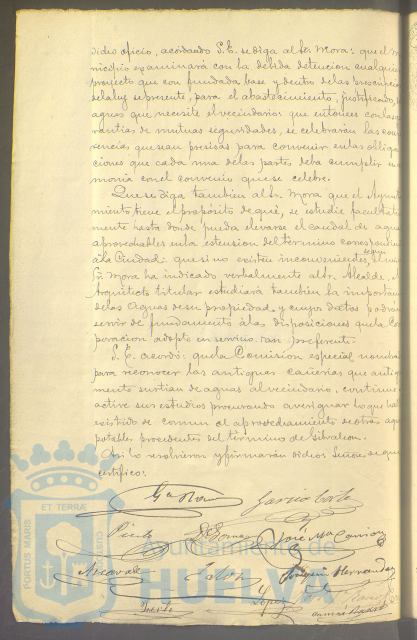 dicho oficio, acordando S.E. se diga al Sr. Mora: que el Mu
nicipio examinará con la debida detencion cualquier
proyecto que con fundada base y dentro de las prescripcio
de la ley se presente, para el abastecimiento, justificando,
aguas que necesite el vecindario que entonces con las ga
rantias de mutuas seguridades, se celebrarán las con
rencias que sean precisas para convenir en las obliga
ciones que cada una de las partes deba cumplir en
monia con el convenio que se celebre.
Que se diga tambien al Sr. Mora que el Ayunt
miento tiene el propósito de que, se estudie facultati
mente hasta donde pueda elevarse el caudal de aguas
aprovechables en la estension del termino correspondien
á la Ciudad: que si no existen inconvenientes, segun
Sr. Mora ha indicado verbalmente al Sr. Alcalde,
Arquitecto titular estudiará tambien la importan
de las aguas de su propiedad y cuyos datos podrán
servir de fundamento á las disposiciones que la Co
poracion adopte en servicio tan preferente.
S.E. acordó: que la Comision especial nombra
para reconocer las antiguas cañerias que antigu
mente surtian de aguas al vecindario, continue
active sus estudios procurando averiguar lo que ha
existido de comun al aprovechamiento de otras aguas
potables procedentes del término de Gibraleon.
Asi lo resolvieron y firmarán dichos Señores de que
certifico:
Garcia
Pinto José Mª
Colon Joaquin Hernandez
Lopez
PORTUS MARIS ET TERRÆ CUSTODIA
Ayuntamiento de
HUELVA